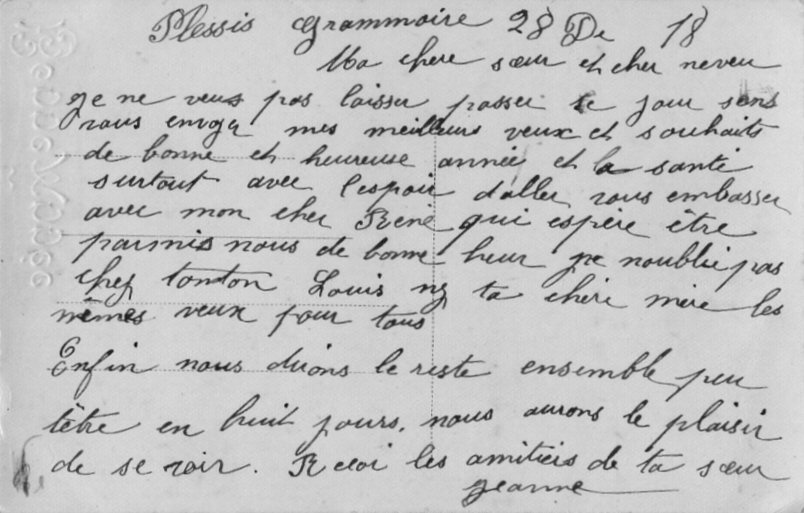 Plessis Grammoire 28 De 18
Ma chere sœur et cher neveu
Je ne veux pas laisser passer le jour sans
vous envoyer mes meilleurs veux et souhaits
de bonne et heureuse année et la santé
surtout avec l'espoir d'aller vous embasser
avec mon cher René qui espère être
parmis nous de bonne heur je noublie pas
chez tonton Louis ta chère mère les
mêmes veux pour tous
Enfin nous dirons le reste ensemble peu
têtre en huit jours. nous aurons le plaisir
de se voir. Recoi les amitiés de ta sœur
Jeanne